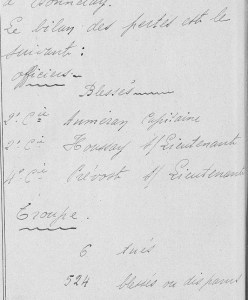 Le bilan des pertes est le
suivant :
officiers
Blessés
2e Cie Aumeran Capitaine
2e Cie Houssay s/ Lieutenant
4e Cie Prévost s/ Lieutenant
Troupe.
6 tués
524 blessés ou disparus